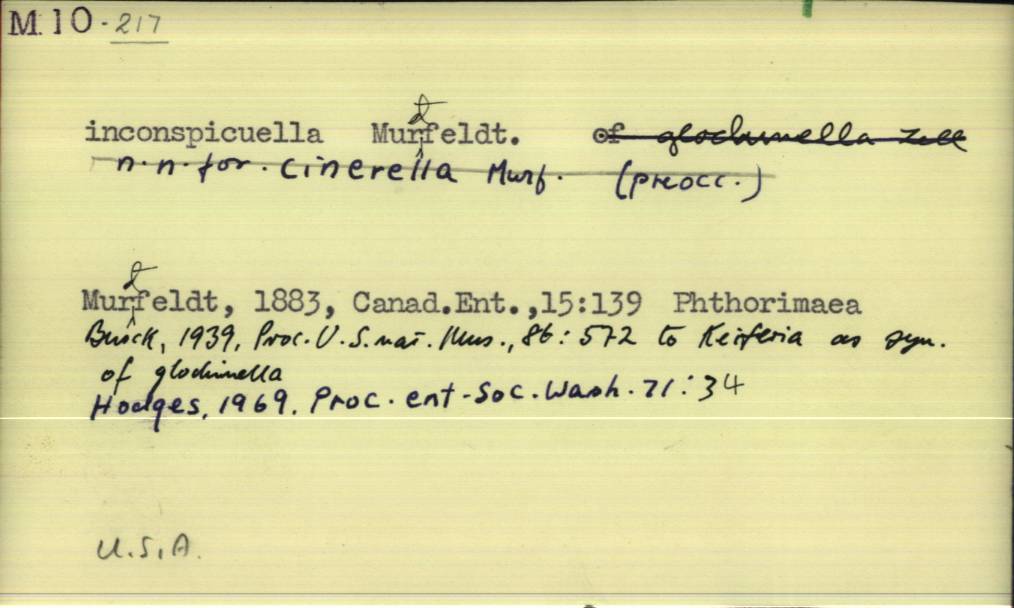 M.10-217
inconspicuella Murtfeldt. of glochinella Zell
n.n.for.cinerella Murf. (preocc.)
Murtfeldt, 1883, Canad.Ent.,15:139 Phthorimaea
Busck, 1939, Proc.U.S.nat.Mus., 86:572 to Keiferia as syn.
of glochinella
Hodges, 1969. Proc.ent-Soc.Wash.71:34
U.S.A.